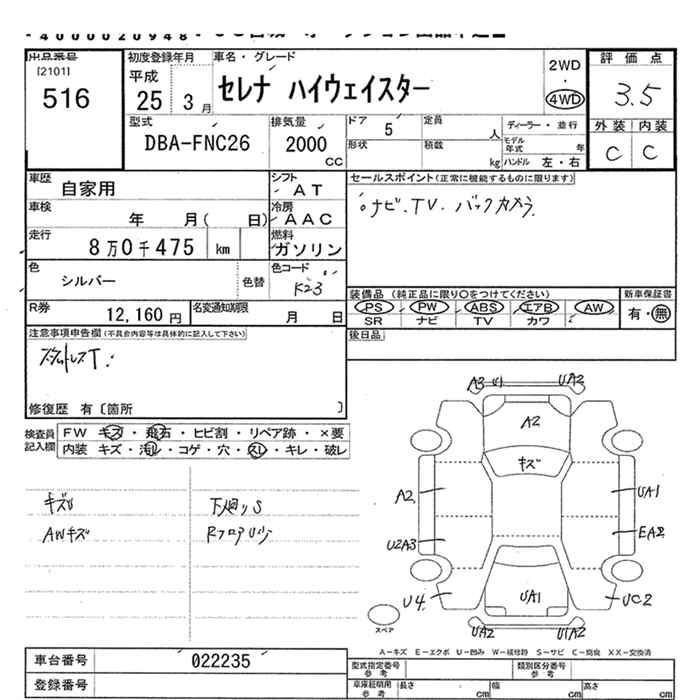 4000020948
出品番号
[2101]
516
初度登録年月
平成
25 3月
車名・グレード
セレナ ハイウェイスター
2WD
・
4WD
評価点
3.5
外装 内装
C C
型式
DBA-FNC26
排気量
2000
CC
ドア
5
定員
人
ディーラー・並行
形状
積載
kg
モデル
年式
年
ハンドル 左・右
車歴
自家用
シフト
AT
車検
年 月( 日)
冷房
AAC
走行
8万0千475 km
燃料
ガソリン
色
シルバー
色替
色コード
K23
R券
12,160円
名変通知期限
月 日
セールスポイント(正常に機能するものに限ります)
ナビ.TV. バックカメラ.
装備品 (純正品に限り○をつけてください)
新車保証書
PS PW ABS エアB AW
有・無
SR ナビ TV カワ
後日品
注意事項申告欄(不具合内容等は具体的に記入して下さい)
修復歴 有〔箇所 〕
検査員
記入欄
FW キズ・飛石・ヒビ割・リペア跡・×要
内装 キズ・汚れ・コゲ・穴・スレ・キレ・破レ
キズU
AWキズ
下廻りS
A3 U1 UA2
A2
キズ
A2
UA1
U2A3
EA2
U4
UA1
UC2
スペア
UA2
U1A2
A-キズ E-エクボ U-凹み W-補修跡 S-サビ C-腐食 XX-交換済
車台番号
022235
登録番号
型式指定番号
参考
類別区分番号
参考
車庫証明用
参考
長さ
cm
幅
cm
高さ
cm